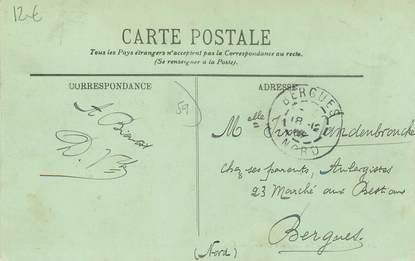 12€
CARTE POSTALE
Tous les Pays étrangers n'acceptent pas la Correspondance au recto.
(Se renseigner à la Poste).
CORRESPONDANCE
ADRESSE
59
BERGUES
NORD
Melle Vandenbroucke
Chez ses parents, Aubergistes
23 Marché aux Bestiaux
Bergues.
(Nord)